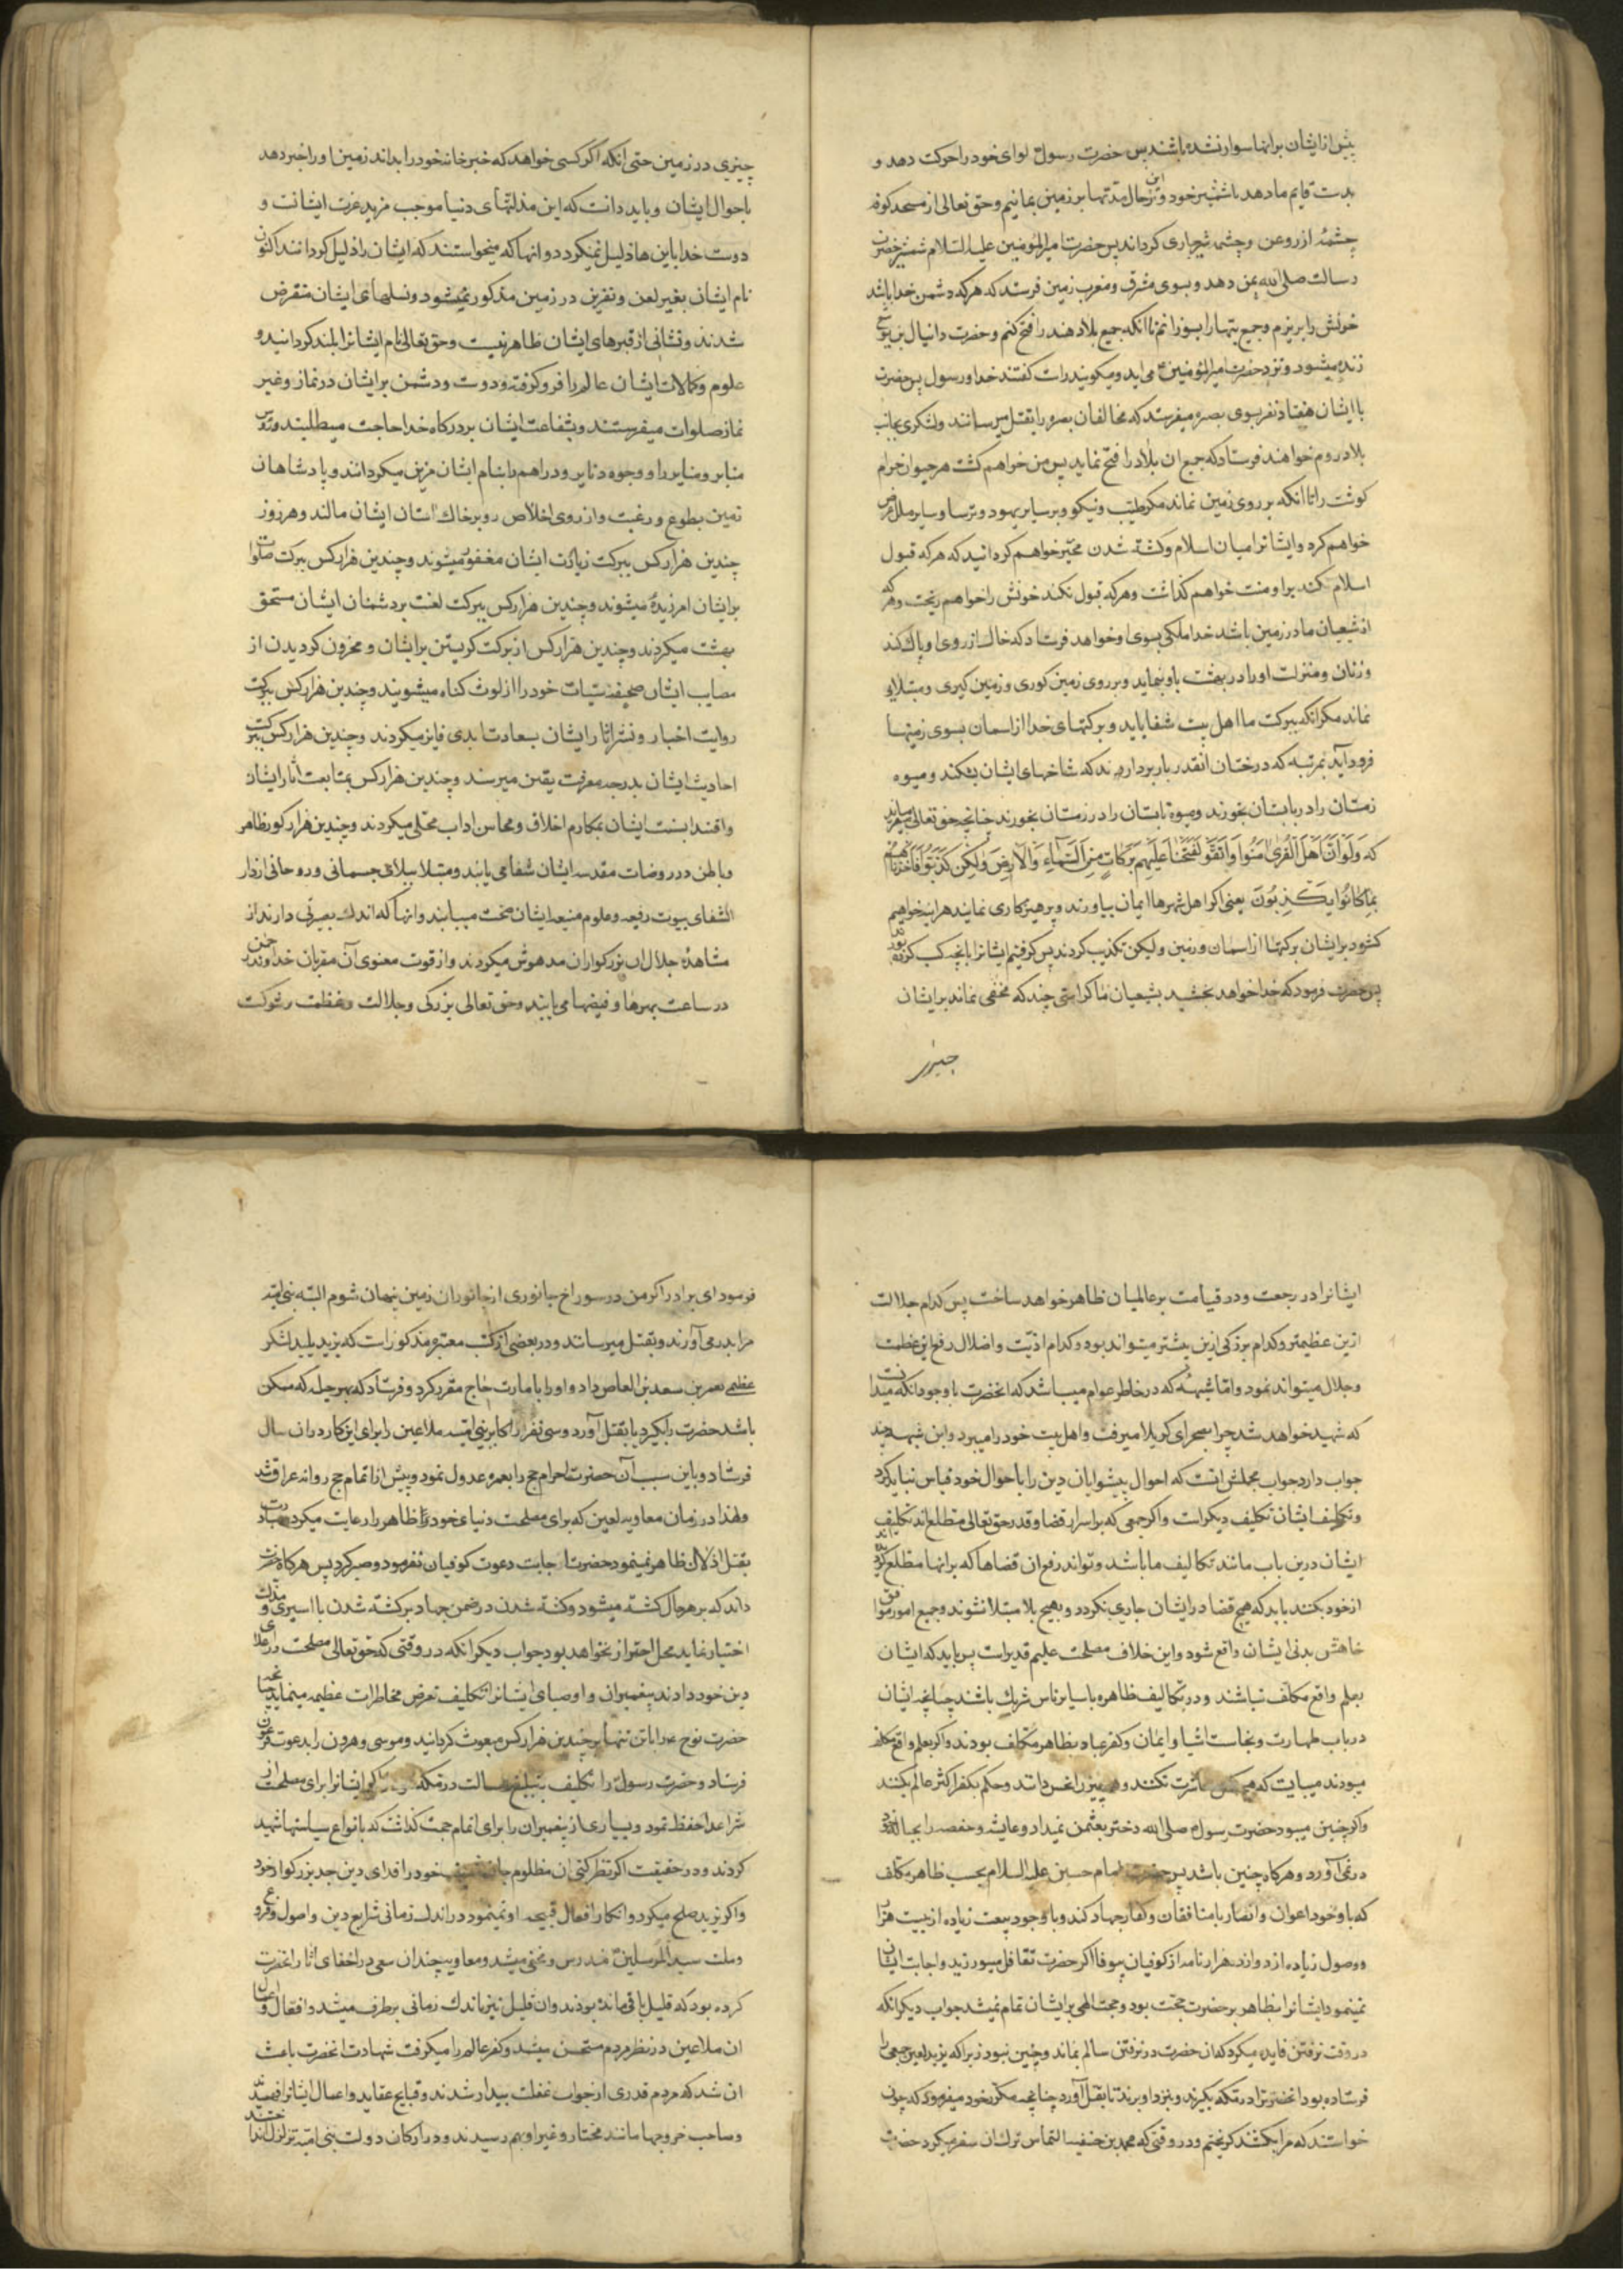 پیش از ایشان برانها سوار نشده باشند پس حضرت رسول لوای خود را حرکت دهد و
بدست قایم ما دهد با شمشیر خود و بر این حال مدتها بر زمین بمانیم و حق تعالی از مسجد کوفه
چشمهٔ از روغن و چشمه شیر جاری کرداند پس حضرت امیرالمؤمنین علیه السلام شمشیر حضرت
رسالت صلی الله بمن دهد و بسوی مشرق و مغرب زمین فرستد که هر که دشمن خدا باشد
خونش را بریزم و جمیع بتها را بسوزانم تا انکه جمیع بلاد هند را فتح کنم و حضرت دانیال و یوشع
زنده میشود و نزد حضرت امیرالمؤمنین می اید و میکویند راست کفتند خدا و رسول پس حضرت
با ایشان هفتاد نفر بسوی بصره میفرستد که مخالفان بصره را بقتل میرسانند و لشکری بجانب
بلاد روم خواهند فرستاد که جمیع ان بلاد را فتح نماید پس من خواهم کشت هر حیوان حرام
کوشت را تا انکه بر روی زمین نماند مکر طیب و نیکو و بر سایر یهود و ترسا و سایر ملل عرض
خواهم کرد و ایشانرا میان اسلام و کشته شدن مخیر خواهم کردانید که هر که قبول
اسلام کند بر او منت خواهم کذاشت و هر که قبول نکند خونش را خواهم ریخت و هر که
از شیعیان ما در زمین باشد خدا ملکی بسوی او خواهد فرستاد که خاک از روی او پاک کند
و زنان و منزلت او را در بهشت باو بنماید و بر روی زمین کوری و زمین کیری و مبتلایی
نماند مکر انکه ببرکت ما اهل بیت شفا یابد و برکتهای خدا از اسمان بسوی زمینها
فرود آید بمرتبه که درختان انقدر بار بردارند که شاخهای ایشان بشکند و میوه
زمستان را در تابستان بخورند و میوه تابستان را در زمستان بخورند چنانچه حق تعالی میفرماید
که وَلَوْ اَنَّ اَهْلَ الْقُرىٰ اٰمَنُوا وَاتَّقَوْ لَفَتَحْنٰا عَلَيْهِمْ بَرَكٰاتٍ مِنَ السَّمٰاءِ وَالْاَرْضِ وَلٰكِنْ كَذَّبُوْا فَاَخَذْنٰاهُمْ
بِمٰا كٰانُوا يَكْذِبُونَ یعنی اکر اهل شهرها ایمان بیاورند و پرهیزکاری نمایند هر اینه خواهیم
کشود بر ایشان برکتها از اسمان و زمین و لیکن تکذیب کردند پس کرفتیم ایشانرا بانچه کسب کرده بودند
پس حضرت فرمود که خدا خواهد بخشید بشیعیان ما کرامتی چند که مخفی نماند بر ایشان
چیزی
چیزی در زمین حتی انکه اکر کسی خواهد که خبر خانه خود را بداند زمین او را خبر دهد
باحوال ایشان و باید دانست که این مذلتهای دنیا موجب مزید عزت ایشانست و
دوست خدا باین ها ذلیل نمیکردد و انها که میخواستند که ایشان را ذلیل کردانند اکنون
نام ایشان بغیر لعن و نفرین در زمین مذکور نمیشود و نسلهای ایشان منقرض
شدند و نشانی از قبرهای ایشان ظاهر نیست و حق تعالی نام ایشانرا بلند کردانید و
علوم و کمالات ایشان عالم را فرو کرفته و دوست و دشمن بر ایشان در نماز و غیر
نماز صلوات میفرستند و بشفاعت ایشان بر درکاه خدا حاجت میطلبند و رؤس
منابر و منایر را و وجوه دنانیر و دراهم را بنام ایشان مزین میکردانند و پادشاهان
زمین بطوع و رغبت و از روی اخلاص رو بر خاک استان ایشان مالند و هر روز
چندین هزار کس ببرکت زیارت ایشان مغفور میشوند و چندین هزار کس ببرکت صلوات
بر ایشان امرزیده میشوند و چندین هزار کس ببرکت لعنت بر دشمنان ایشان مستحق
بهشت میکردند و چندین هزار کس از برکت کریستن بر ایشان و محزون کردیدن از
مصایب ایشان صحیفه سیئات خود را از لوث کناه میشویند و چندین هزار کس ببرکت
روایت اخبار و نشر اثار ایشان بسعادت ابدی فایز میکردند و چندین هزار کس ببرکت
احادیث ایشان بدرجه معرفت یقین میرسند و چندین هزار کس بمتابعت اثار ایشان
و اقتدا بسنت ایشان بمکارم اخلاق و محاسن اداب محلی میکردند و چندین هزار کور ظاهر
و باطن در روضات مقدسه ایشان شفا می یابند و مبتلا ببلای جسمانی و روحانی از دار
الشفای بیوت رفیعه و علوم منیعه ایشان صحت مییابند و انها که اندک بصیرتی دارند از
مشاهدهٔ جلال ان بزرکواران مدهوش میکردند و از قوت معنوی آن مقربان خداوند
در ساعت بهرها و فیضها می یابند و حق تعالی بزرکی و جلالت و عظمت و شوکت
ایشانرا در رجعت و در قیامت بر عالمیان ظاهر خواهد ساخت پس کدام جلالت
ازین عظیمتر و کدام بزرکی ازین بیشتر میتواند بود و کدام اذیت و اضلال رفع این عظمت
و جلال میتواند نمود و اما شبههٔ که در خاطر عوام میباشد که انحضرت با وجود انکه میدانست
که شهید خواهد شد چرا بصحرای کربلا میرفت و اهل بیت خود را میبرد و این شبهه چند
جواب دارد جواب مجملش انست که احوال پیشوایان دین را باحوال خود قیاس نباید کرد
و تکلیف ایشان تکلیف دیکر است و اکر جمعی که بر اسرار قضا و قدر حق تعالی مطلع اند تکلیف
ایشان درین باب مانند تکالیف ما باشد و تواند رفع ان قضاها که برانها مطلع کردیده اند
از خود بکنند باید که هیچ قضا در ایشان جاری نکردد و بهیچ بلا مبتلا نشوند و جمیع امور موافق
خاهش بدنی ایشان واقع شود و این خلاف مصلحت علیم قدیر است پس باید که ایشان
بعلم واقع مکلف نباشند و در تکالیف ظاهره با سایر ناس شریک باشند چنانچه ایشان
در باب طهارت و نجاست اشیا و ایمان و کفر عباد بظاهر مکلف بودند و اکر بعلم واقع مکلف
میبودند میبایست که هیچکس معاشرت نکنند و همه چیز را نجس دانند و حکم بکفر اکثر عالم بکنند
و اکر چنین میبود حضرت رسول صلی الله دختر بعثمن نمیداد و عایشه و حفصه را بحباله خود
درنمی آورد و هرکاه چنین باشد پس حضرت امام حسین علیه السلام بحسب ظاهر مکلف
که با وجود اعوان و انصار با منافقان و کفار جهاد کند و با وجود بیعت زیاده از بیست هزار
و وصول زیاده از دوازده هزار نامه از کوفیان بیوفا اکر حضرت تقاعل میورزید و اجابت ایشان
نمینمود ایشانرا بظاهر بر حضرت حجت بود و حجت الهی بر ایشان تمام نمیشد جواب دیکر انکه
در وقت نرفتن فایده میکرد که ان حضرت در نرفتن سالم بماند و چنین نبود زیرا که یزید لعین جمعی را
فرستاده بود انحضرت را در مکه بکیرند و بنزد او برند تا بقتل آورد چنانچه مکرر خود میفرمود که چون
خواستند که مرا بکشند کریختم و در وقتی که محمد بن حنفیه التماس ترک ان سفر میکرد حضرت
فرمود ای برادر اکر من در سوراخ جانوری از جانوران زمین پنهان شوم البته بنی امیه
مرا بدر می آورند و بقتل میرسانند و در بعضی از کتب معتبره مذکور است که یزید پلید لشکر
عظیمی بعمر بن سعد بن العاص داد و او را بامارت حاج مقرر کرد و فرستاد که بهر حیله که ممکن
باشد حضرت را بکیرد یا بقتل آورد و سی نفر از اکابر بنی امیه ملاعین را برای این کار در ان سال
فرستاد و باین سبب آن حضرت احرام حج را بعمره عدول نمود و پیش از اتمام حج روانه عراق شد
و لهذا در زمان معاویه لعین که برای مصلحت دنیای خود ظاهر را رعایت میکرد مبادرت
بقتل اذلان ظاهر نمینمود حضرت اجابت دعوت کوفیان نفرمود و صبر کرد پس هرکاه حضرت
داند که بر هر حال کشته میشود و کشته شدن در ضمن جهاد بر کشته شدن با اسیری و مذلت
اختیار نماید محل احتراز نخواهد بود جواب دیکر انکه در وقتی که حق تعالی مصلحت در اعلای
دین خود دادند پیغمبران و اوصیای ایشانرا تکلیف تعرض مخاطرات عظیمه مینماید چنانچه
حضرت نوح را با تن تنها بر چندین هزار کس مبعوث کردانید و موسی و هرون را بدعوت فرعون
فرستاد و حضرت رسول را تکلیف بتبلیغ رسالت در مکه ایشانرا برای مصلحت
شرا عدا حفظ نمود و بسیاری از پیغمبران را برای اتمام حجت کذاشت که بانواع سیاستها شهید
کردند و در حقیقت اکر نظر کنی ان مظلوم جان خود را فدای دین جد بزرکوار خود
و اکر یزید صلح میکرد و انکار افعال قبیحه او نمینمود در اندک زمانی شرایع دین و اصول و فروع
و ملت سید المرسلین مندرس و مخفی میشد و معاویه چندان سعی در اخفای اثار انحضرت
کرده بود که قلیل باقی مانده بودند و ان قلیل نیز باندک زمانی برطرف میشد و افعال و اعمال
ان ملاعین در نظر مردم مستحسن میشد و کفر عالم را میکرفت شهادت انحضرت باعث
ان شد که مردم قدری از خواب غفلت بیدار شدند و قبایح عقاید و اعمال ایشانرا فهمیدند
و صاحب خروجها مانند مختار و غیر او بهم رسیدند و در ارکان دولت بنی امیه تزلزل انداختند